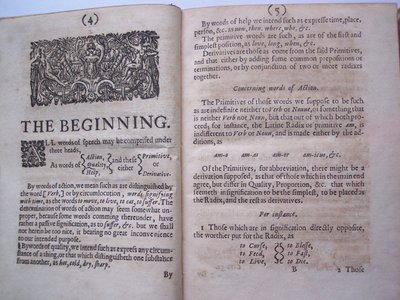 (4)
THE BEGINNING.
ALL words of speech may be comprised under
three heads,
As words of { Action, Quality, Help, } and these either { Primitive, or Derivative.
By words of action, we mean such as are distinguished by
the word [Verb,] or by circumlocution, words, signifying
with time, as the words to move, to love, to eat, to suffer. The
denomination of words of action may seem somewhat un-
proper, because some words comming thereunder, have
rather a passive signification, as to suffer, &c. but we shall
not herein be too nice, it bearing no great inconvenience
to our intended purpose.
By words of quality, we intend such as express any circum-
stance of a thing, or that which distinguisheth one substance
from another, as hot, cold, dry, sharp.
By
(5)
By words of help we intend such as expresse time, place,
person, &c. as now, then, where, who, &c.
The primitive words are such, as are of the first and
simplest position, as love, long, when, &c.
Derivatives are those as come from the said Primitives,
and that either by adding some common prepositions or
terminations, or by conjunction of two or more radixes
together.
Concerning words of Action.
The Primitives of those words we suppose to be such
as are indefinite neither to Verb or Noune, as somthing that
is neither Verb nor Noun, but that out of which both pro-
ceed; for instance, the Latine Radix or primitive am, is
indifferent to Verb or Noun, and is made either by the ad-
ditions, as
am-o am-or am-er am-icus, &c.
Of the Primitives, for abbreviation, there might be a
derivation supposed, as of those of which the in the main end
agree, but differ in Quality, Proportion, &c. that which
seemeth in signification to be the simplest, to be placed as
the Radix, and the rest as derivatives.
For instance.
1 Those which are in signification directly opposite,
the worther put for the Radix,
to Curse, to Blesse,
to Feed, to Fast,
to Live, to Die.
B 2 Those